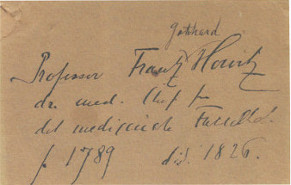 Gotthard
Professor Frantz Howitz
dr. med. Chef for
det medicinske Fakultet.
f. 1789 død. 1826.